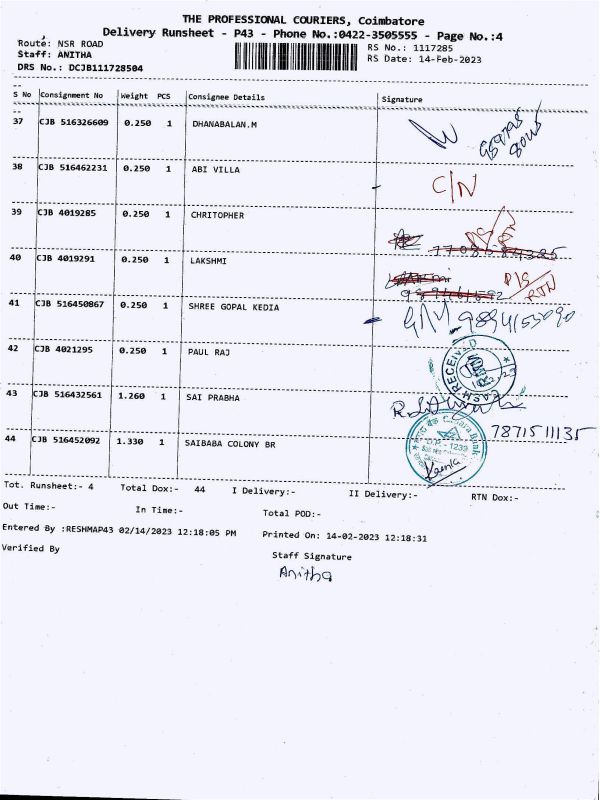 THE PROFESSIONAL COURIERS, Coimbatore
Delivery Runsheet - P43 - Phone No.:0422-3505555 - Page No.:4
Route: NSR ROAD
RS No.: 1117285
Staff: ANITHA
RS Date: 14-Feb-2023
DRS No.: DCJB111728504
S No Consignment No Weight PCS Consignee Details Signature
37 CJB 516326609 0.250 1 DHANABALAN.M
38 CJB 516462231 0.250 1 ABI VILLA C/N
39 CJB 4019285 0.250 1 CHRITOPHER
40 CJB 4019291 0.250 1 LAKSHMI D/S RTN
41 CJB 516450867 0.250 1 SHREE GOPAL KEDIA 9894153090
42 CJB 4021295 0.250 1 PAUL RAJ CASH RECEIVED
43 CJB 516432561 1.260 1 SAI PRABHA
7871511135
44 CJB 516452092 1.330 1 SAIBABA COLONY BR Canara Bank D.P. - 1239
Tot. Runsheet:- 4 Total Dox:- 44 I Delivery:- II Delivery:- RTN Dox:-
Out Time:- In Time:- Total POD:-
Entered By :RESHMAP43 02/14/2023 12:18:05 PM Printed On: 14-02-2023 12:18:31
Verified By Staff Signature
Anitha